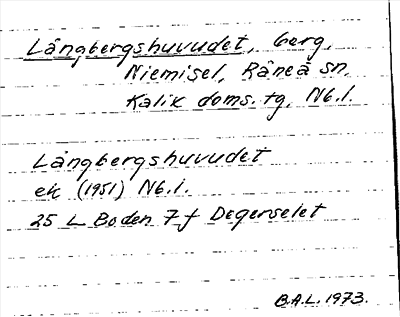 Långbergshuvudet, berg,
Niemisel, Råneå sn,
Kalix doms. tg, Nb.l.
Långbergshuvudet
ek (1951) Nb.l.
25 L Boden 7f Degerselet
B.A.L. 1973.